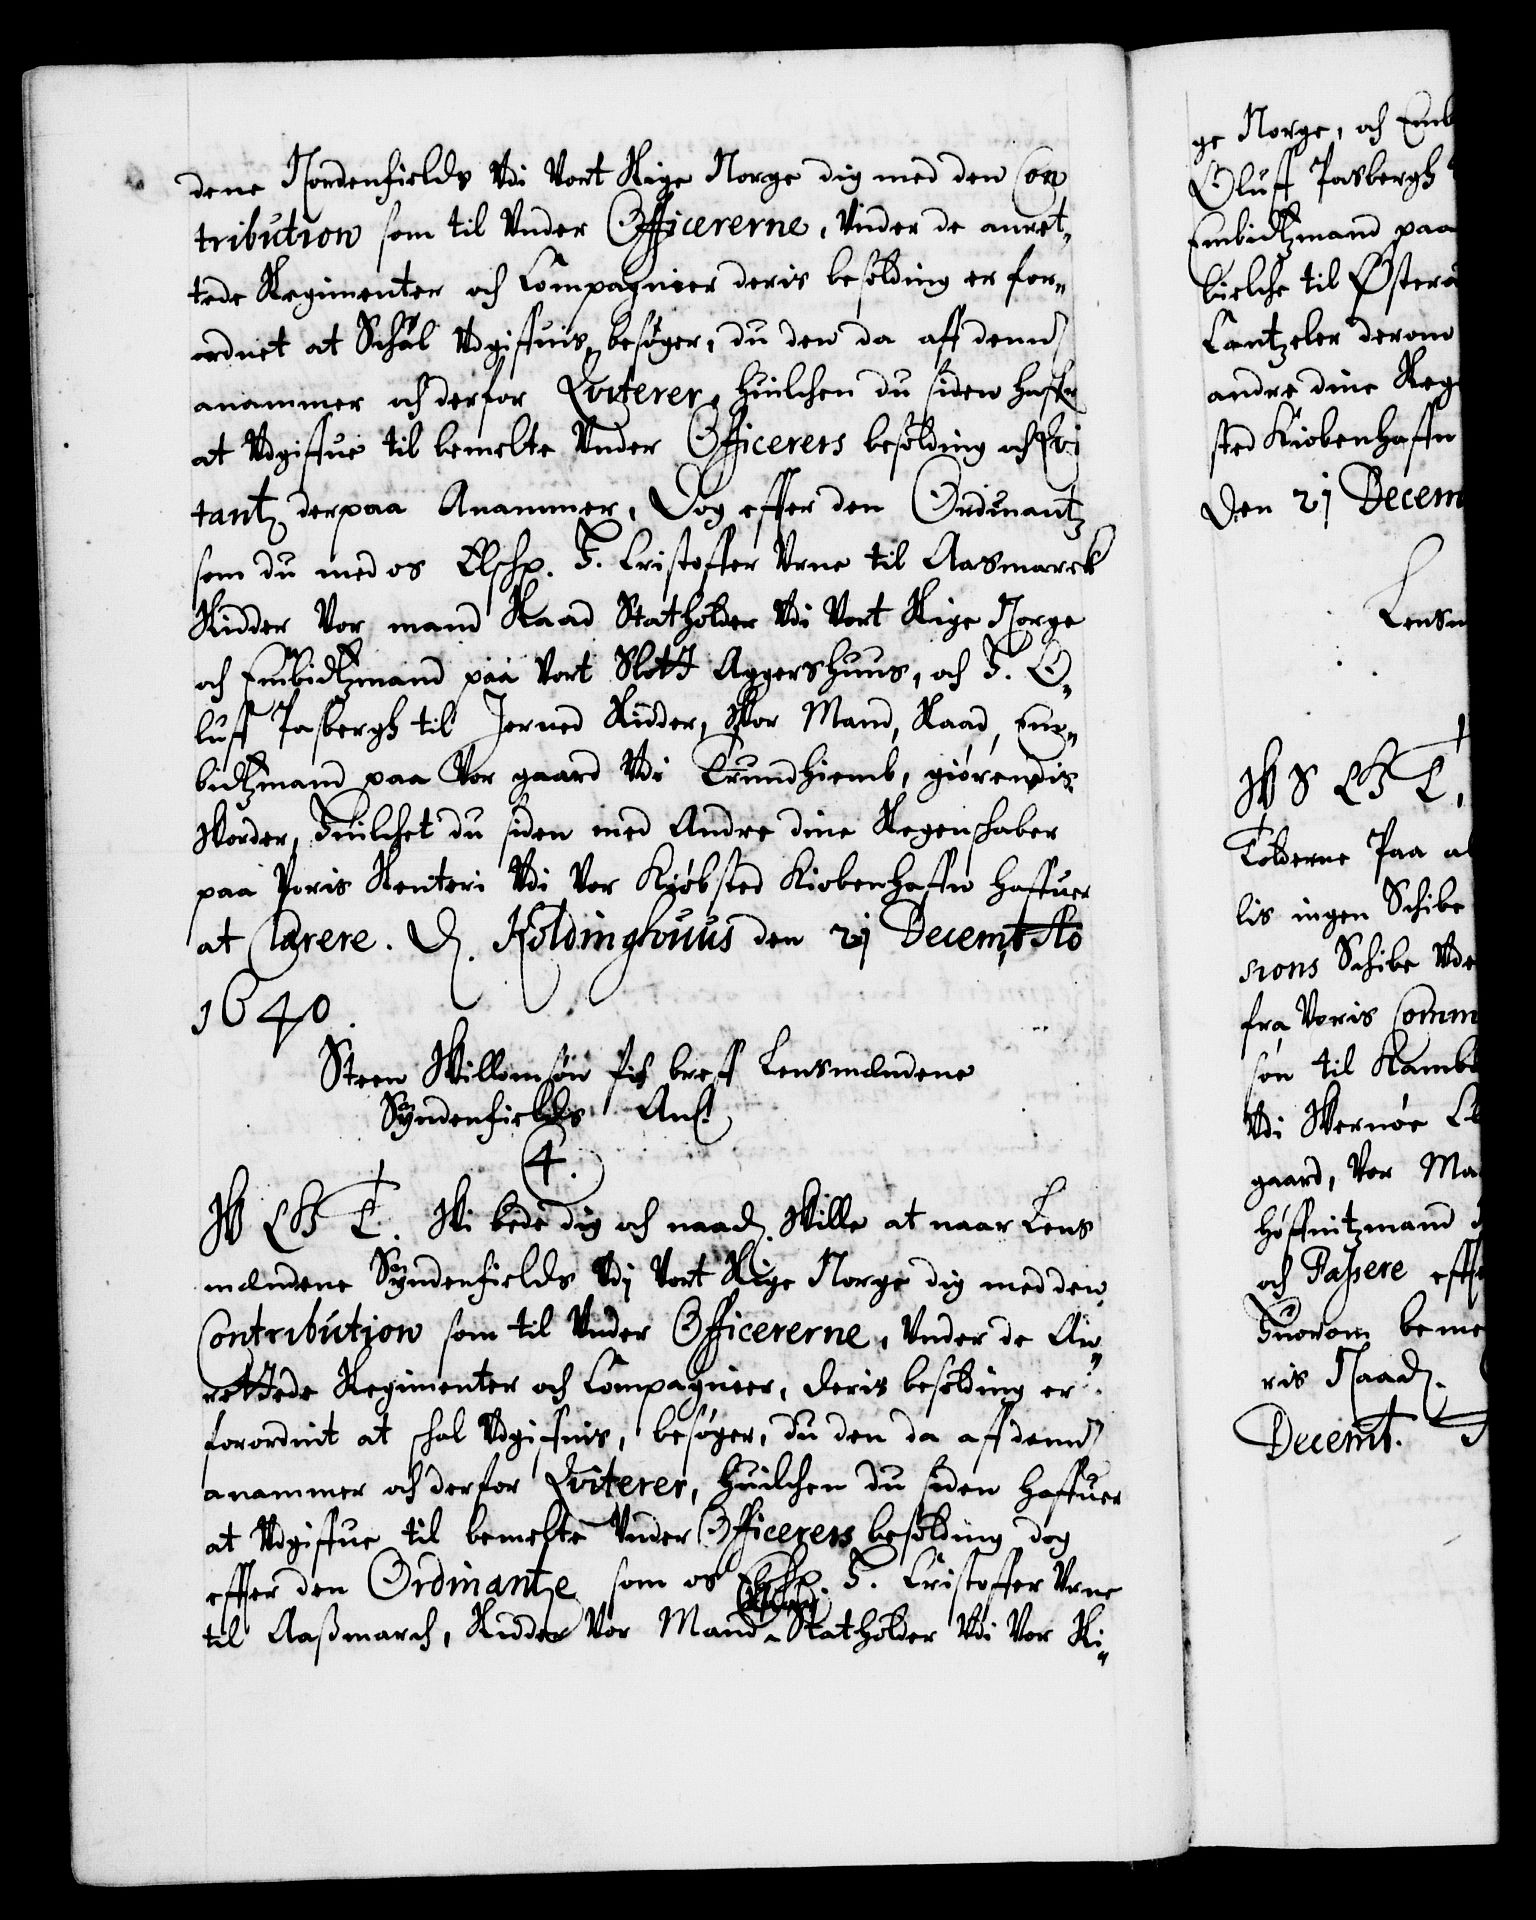 dene Nordenfields Vdi Vort Rige Norge dig med den Con
tribution som til Vnder Officererne, Vnder de anret„
tede Regimenter och Compagnier deris besolding er for„
ordnet at Schal Vdgiffuis, besøger, du den da aff dennd
anammer och derfor Qviterer, huilchen du siden haffr
at Vdgiffue til bemelte Vnder Officerers besolding och Qvi
tantz derpaa Anammer, Dog effter den Ordinantz
som du med os Elschp. H. Cristoffer Vrne til Aasmarck
Ridder Vor mand Raad Statholder Vdi Vort Rige Norge
och Embidtzmand paa Vort Slott Aggershuus, och H. O„
luff Pasbergh til Jerned Ridder, Vor Mand, Raad, Em„
bidtzmand paa Vor gaard Vdi Trundhiemb, giørendis
Vorder, Huilchet du siden med Andre dine Regenschaber
paa Voris Renteri Vdi Vor Kiøbsted Kiobenhaffn haffuer
at Clarere. D. Koldinghuus den 21 Decemt. Ao
1640.
Steen Willomsøn fich breff Lensmændene
Søndenfields Anl.
4.
W G T. Wi bede dig och naad. Wille at naar Lens
mændene Søndenfields Vdj Vort Rige Norge dig med den
Contribution som til Vnder Officererne, Vnder de An„
rettede Regimenter och Compagnier, deris besolding er
forordnit at schal Vdgiffuis, besøger, du den da aff dennd
anammer och derfor Qviterer, huilchen du siden haffuer
at Vdgiffue til bemelte Vnder Officerers besolding dog
effter den Ordinantze som os Elschp. H. Cristoffer Vrne
til Aaßmarch, Ridder Vor Mand Statholder Vdi Vor Ri„
ge Norge, och Emb
Oluff Pasbergh
Embidtzmand paa
bielche til Østera
Cantzeler derom
andre dine Reg
sted Kiobenhaffn
Den 21 Decem
Lensm
W S G T,
Tolderne Paa al
lis ingen Schibe
sions Schibe Vde
fra Voris Comm
søn til Ramb
Vdi Wernøe Cl
gaard, Vor Ma
høffuitzmand
och Passere efft
Huorom beme
ris Naad.
Decemt.